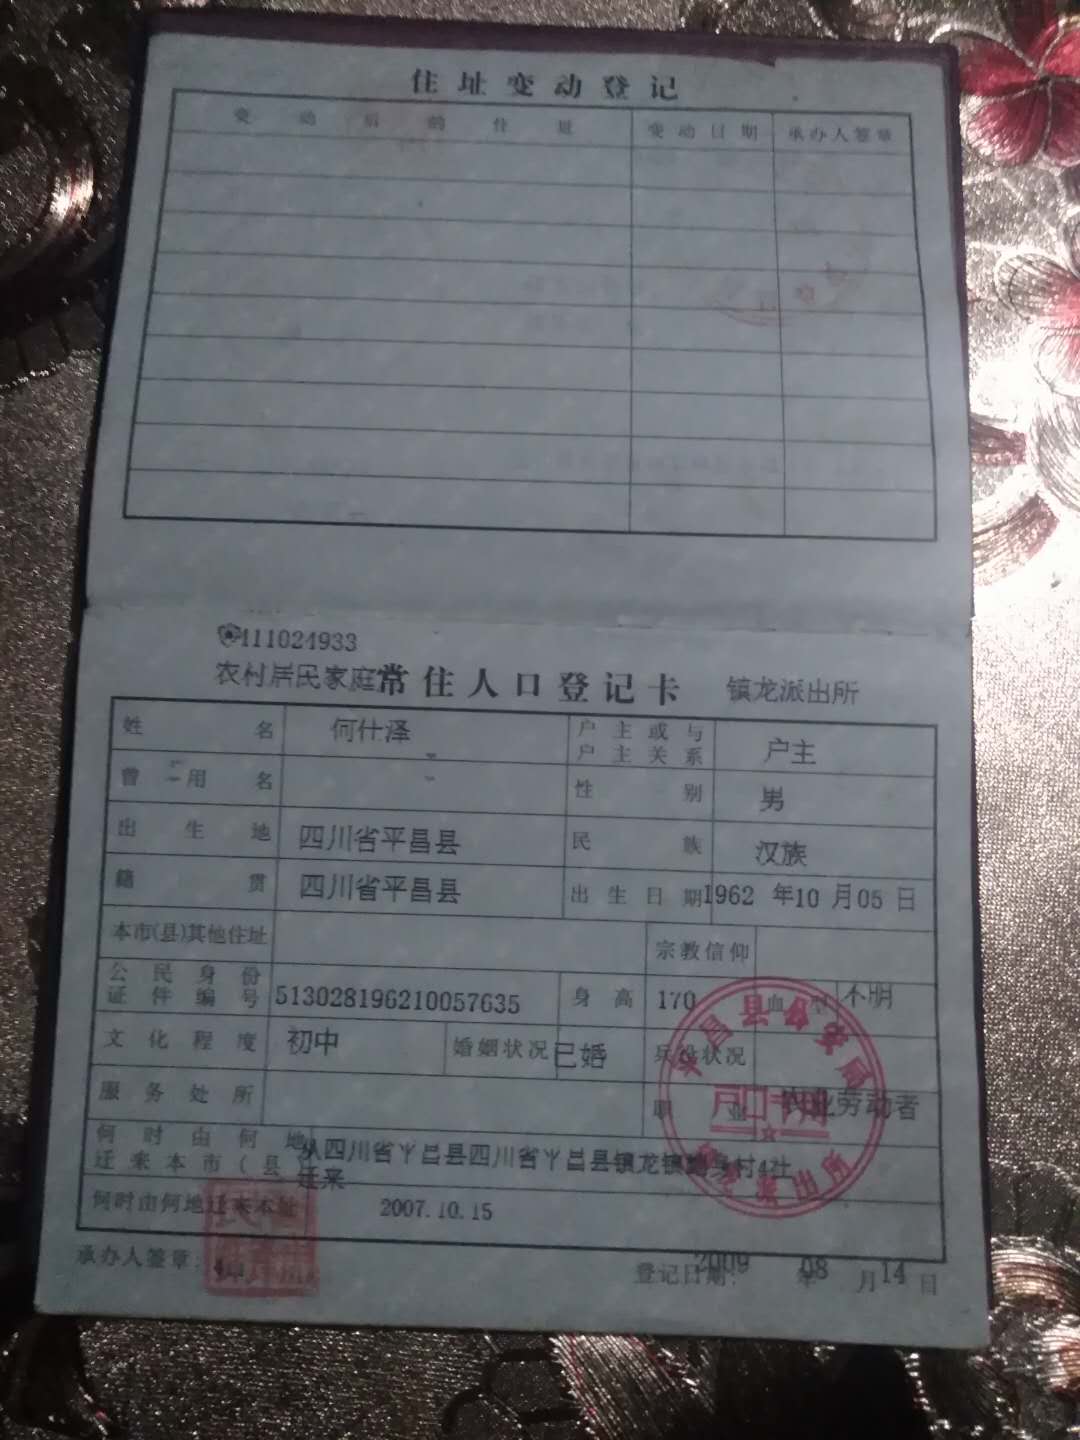 住址变动登记
变动后的住址 变动日期 承办人签章
111024933
农村居民家庭常住人口登记卡 镇龙派出所
姓名 何仕泽 户主或与户主关系 户主
曾用名 性别 男
出生地 四川省平昌县 民族 汉族
籍贯 四川省平昌县 出生日期 1962年10月05日
本市(县)其他住址 宗教信仰
公民身份证件编号 513028196210057635 身高 170 血型 不明
文化程度 初中 婚姻状况 已婚 兵役状况
服务处所 职业 农业劳动者
何时由何地迁来本市(县) 从四川省平昌县四川省平昌县镇龙镇 村4社迁来
何时由何地迁来本址 2007.10.15
承办人签章: 登记日期: 2009年08月14日
户口专用